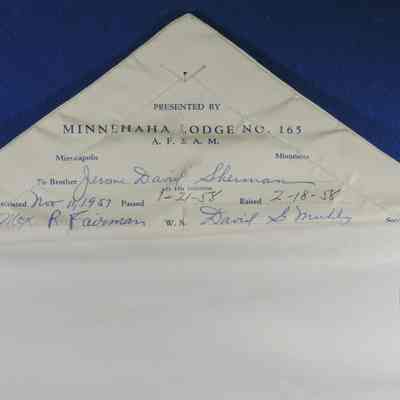 PRESENTED BY
MINNEHAHA LODGE NO. 165
A. F. & A. M.
Minneapolis Minnesota
To Brother Jerome David Sherman
Initiated Nov 11, 1957 Passed 1-21-58 Raised 2-18-58
Max R Fairman W. M. David S